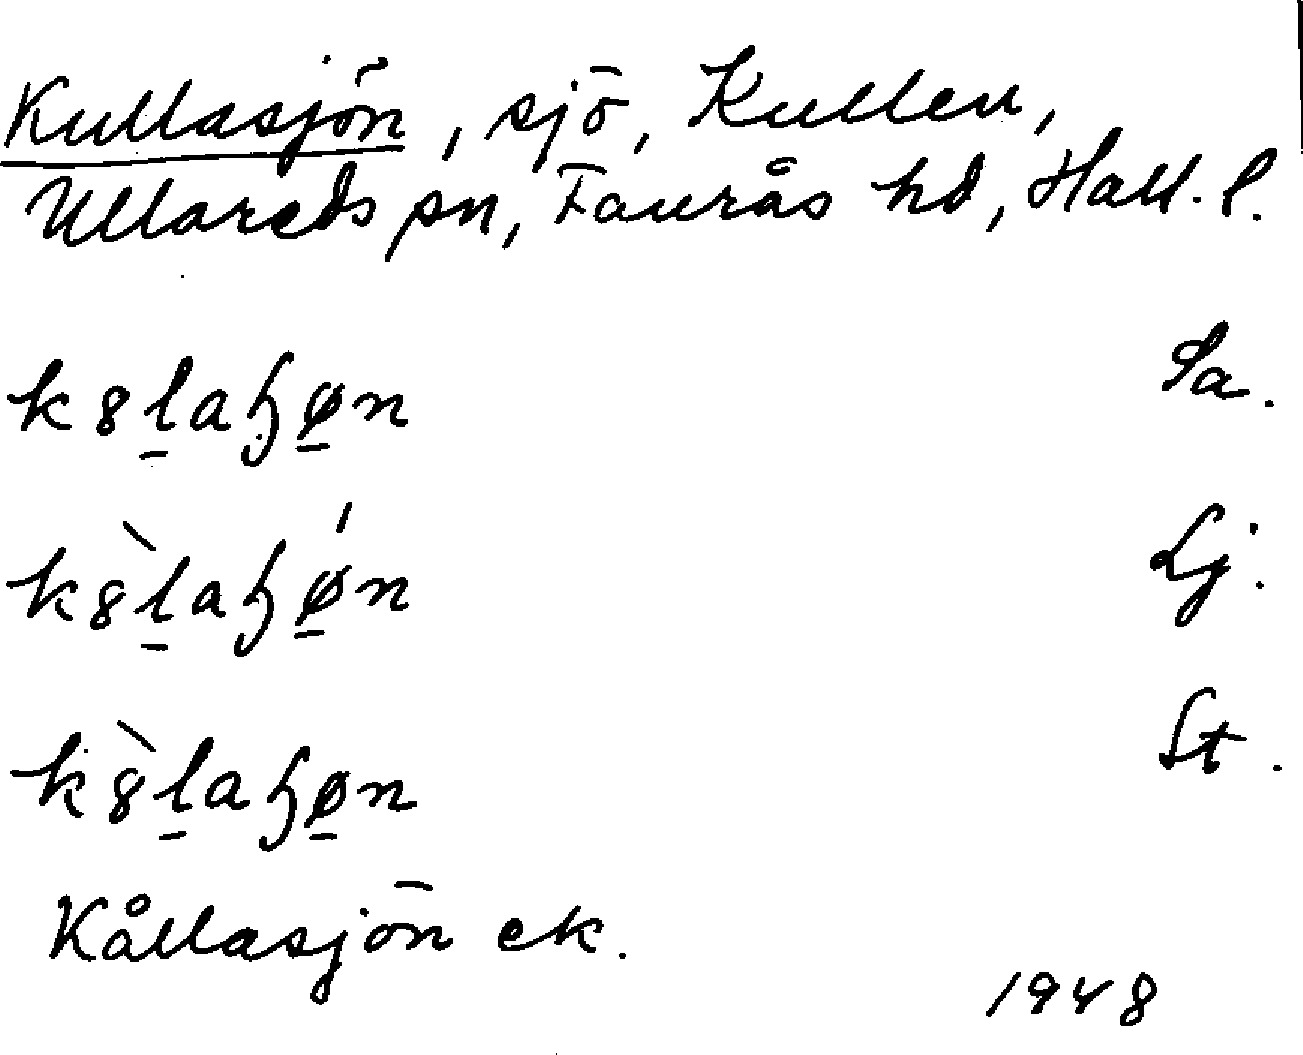 Kullasjön, sjö, Kullen,
Ullareds sn, Faurås hd, Hall. l.
k8l̲aɧø̲n Sa.
k8̀l̲aɧǿ̲n Lj.
k8̀l̲aɧø̲n St.
Kållasjön ek.
1948